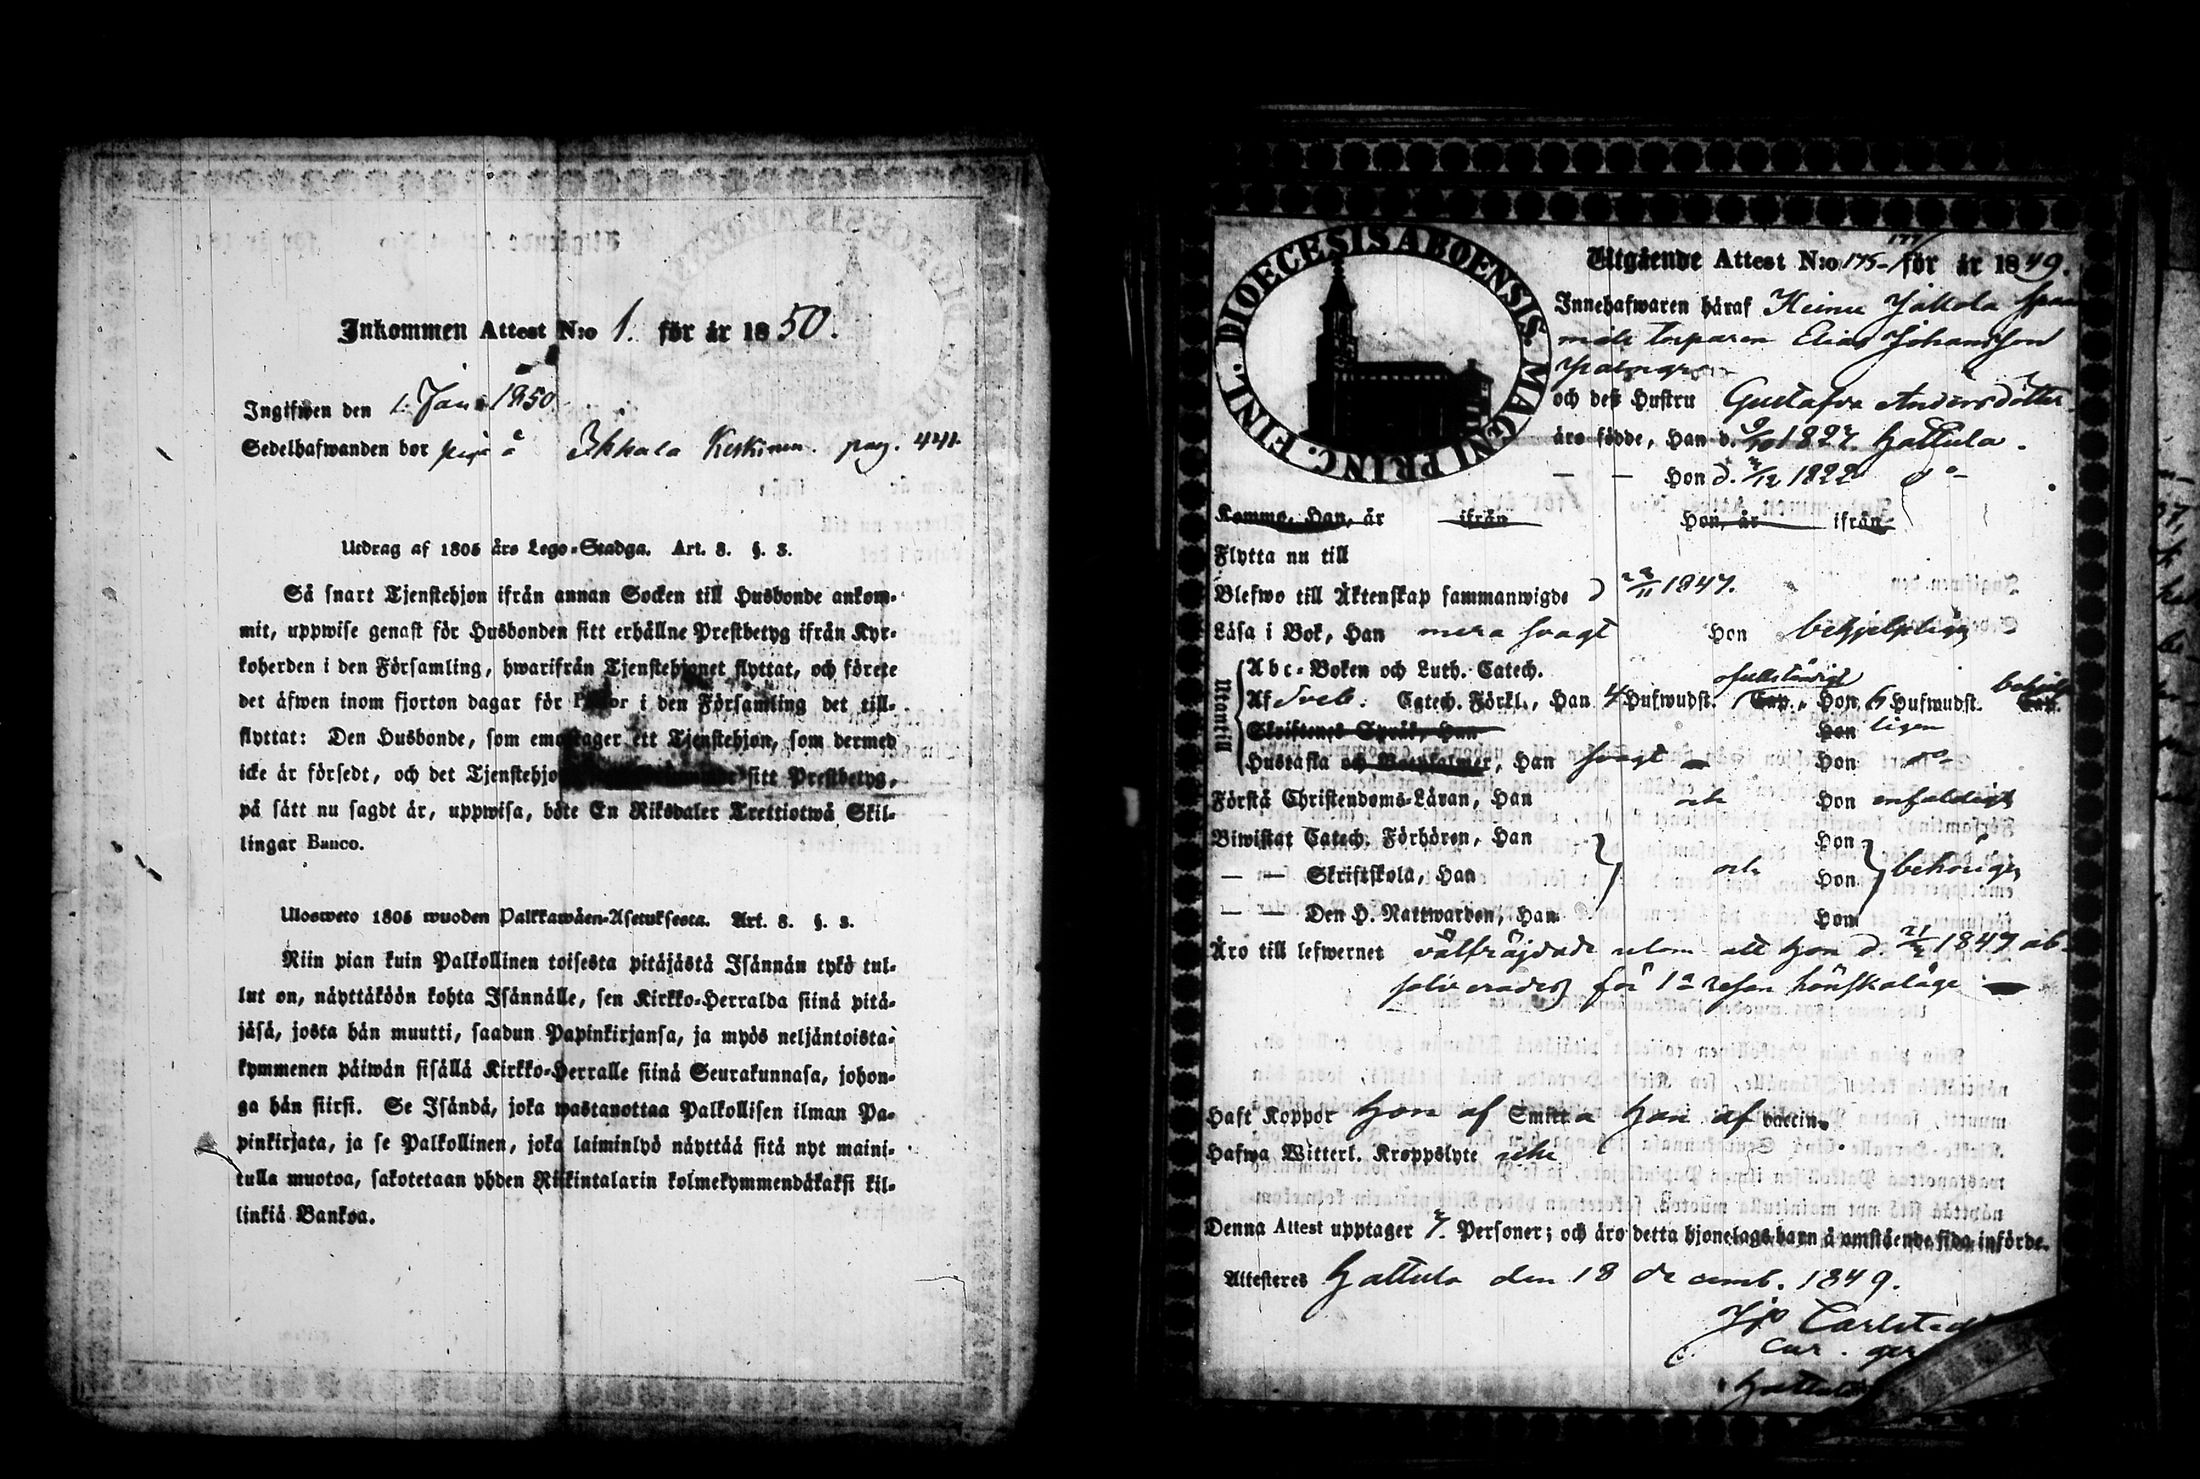 Inkommen Attest N:o 1. för år 1850.
Ingifwen den 1. Jan. 1850
Sedelhafwanden bor å Ikkala Keskinen. pag. 441.
Utdrag af 1805 års Lego-Stadga. Art. 8. §. 3.
Så snart Tjenstehjon ifrån annan Socken till Husbonde ankom-
mit, uppwise genast för Husbonden sitt erhållne Prestbetyg ifrån Kyr-
koherden i den Församling, hwarifrån Tjenstehjonet flyttat, och förete
det äfwen inom fjorton dagar för Pastor i den Församling det till-
flyttat: Den Husbonde, som emottager ett Tjenstehjon, som dermed
icke är försedt, och det Tjenstehjon sitt Prestbetyg,
på sätt nu sagdt är, uppwisa, böte En Riksdaler Trettiotwå Skil-
lingar Banco.
Ulosweto 1805 wuoden Palkkawäen-Asetuksesta. Art. 8. §. 3.
Niin pian kuin Palkollinen toisesta pitäjästä Isännän tykö tul-
lut on, näyttäköön kohta Isännälle, sen Kirkko-Herralda siinä pitä-
jäsä, josta hän muutti, saadun Papinkirjansa, ja myös neljäntoista-
kymmenen päiwän sisällä Kirkko-Herralle siinä Seurakunnasa, johon-
ga hän siirsi. Se Isändä, joka wastanottaa Palkollisen ilman Pa-
pinkirjata, ja se Palkollinen, joka laiminlyö näyttää sitä nyt maini-
tulla muotoa, sakotetaan yhden Riikintalarin kolmekymmendäkaksi kil-
linkiä Bankoa.
FINL. DIOECESIS ABOENSIS. MAGNI PRINC.
Utgående Attest N:o 175- 177/ för år 1849.
Innehafwaren häraf Heinu Jallola
torparen Elias Johansson
och deß Hustru Gustafva Andersdotter
äro födde, Han d. 9/10 1827. Hattula.
— — Hon d. 2/12 1822 do-
Kommo, Han, år ifrån Hon, år ifrån
Flytta nu till
Blefwo till Äktenskap sammanwigde d 28/11 1847.
Läsa i Bok, Han mera svagt Hon behjelpligen
Utantill
Abc-Boken och Luth. Catech.
Af Sveb. Catech. Förkl., Han 4 Hufwudst. ofullständigt Cap., Hon 6 Hufwudst. behjelp Cap.
Skriftenes Språk, Han Hon ligen
Hustafla och Botpsalmer, Han svagt Hon do-
Förstå Christendoms-Läran, Han och Hon enfaldigt
Biwistat Catech. Förhören, Han Hon
— — Skriftskola, Han och Hon behörigen
— — Den H. Nattwarden, Han Hon
Äro till lefwernet välfräjdade utom att hon d. 21/2 1847 ab-
solverades för 1a resan lönskaläge
Haft Koppor Hon af Smitta Han af vaccin.
Hafwa Witterl. Kroppslyte icke
Denna Attest upptager 2 Personer; och äro detta hjonelags barn å omstående sida införde.
Attesteres Hattula den 18 decemb. 1849.
JP Carlstedt
Cur. ger
Hattula